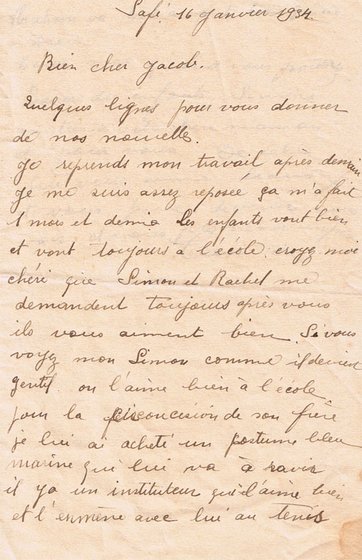 Safé 16 Janvier 1934.
Bien cher Jacob.
Quelques lignes pour vous donner
de nos nouvelle.
Je reprends mon travail après demain
Je me suis assez reposée ça m'a fait
1 mois et demie Les enfants vont bien
et vont toujours à l'école croyez moi
chéri que Simon et Rachel me
demandent toujours après vous
ils vous aiment bien Si vous
voyez mon Simon comme il devient
gentil. on l'aime bien à l'école
pour la circoncision de son frère
je lui ai acheté un costume bleu
marine qui lui va à ravir
il ya un instituteur qui l'aime bien
et l'enmène avec lui au tenis